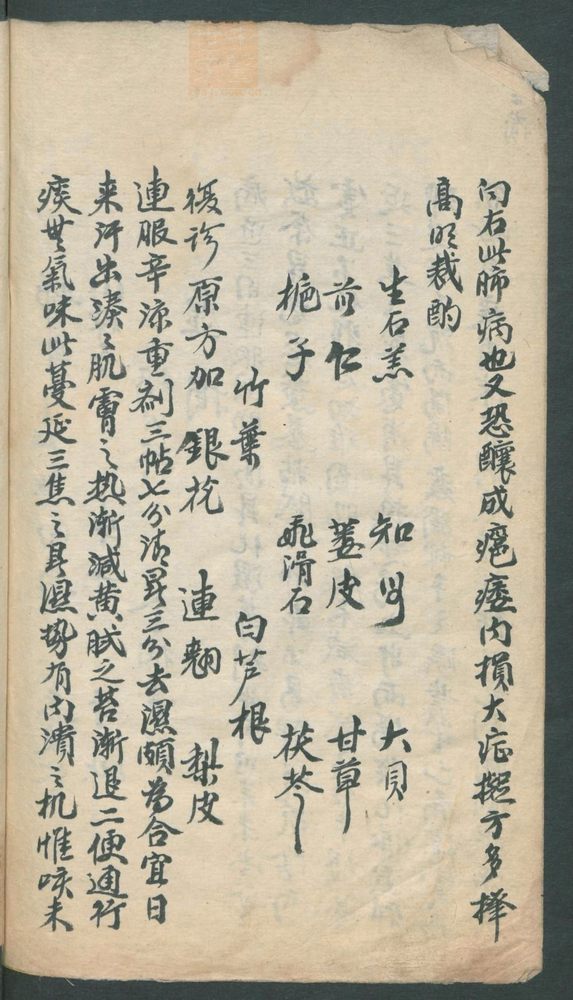 问右此肺病也又恐釀成瘧瘧内損大症擬方多擇
高明裁酌
生石羔 知母 大貝
苡仁 蔞皮 甘草
梔子 飛滑石 茯苓
竹葉 白芦根
復診原方加 銀花 連翹 梨皮
連服辛涼重剤三帖七分清暑三分去濕頗為合宜日
来汗出溱溱肌膚之热漸減黄膩之苔漸退二便通行
痰無氣味此蔓延三焦之暑濕勢有内潰之机惟咳未